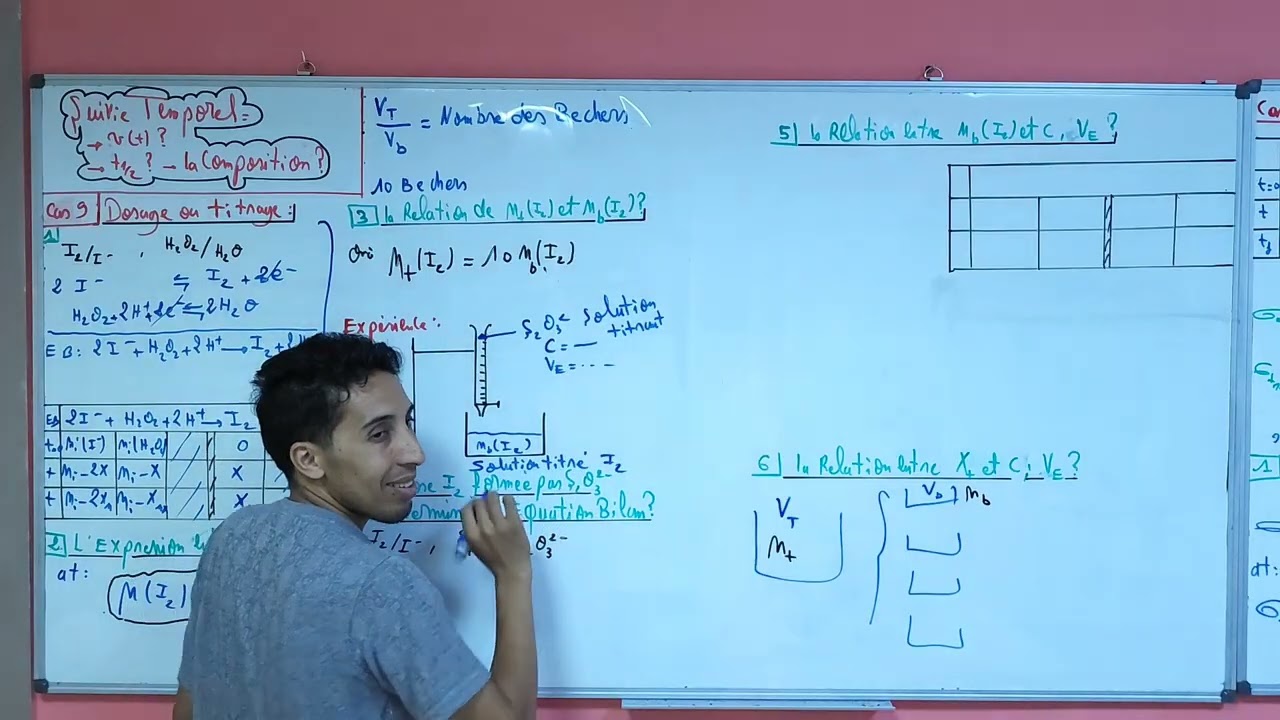 Suivie Temporel:
→ v(t)?
→ t1/2? → la Composition?
Cas 9 Dosage ou titrage:
1
I2/I- , H2O2/H2O
2 I- ⇌ I2 + 2e-
H2O2+2H++2e- ⇌ 2H2O
EB: 2I-+H2O2+2H+ → I2+2
EB 2I- + H2O2+2H+ → I2
t=0 ni(I-) ni(H2O2) 0
t ni-2X ni-X X
t ni-2X ni-X X
2 L'Expression
at:
n(I2)
VT/Vb = Nombre des Bechers
10 Bechers
3 la Relation de nt(I2) et nb(I2)?
nt(I2) = 10 nb(I2)
Expérience:
S2O3 solution titrant
C = —
VE = ...
nb(I2)
solution titré I2
I2 formée par S2O3 2-
Equation Bilan?
I2/I- , O3 2-
5) la Relation entre nb(I2) et C, VE?
6) la Relation entre Xt et C, VE?
VT
nt
Vb nb
t
at:
1